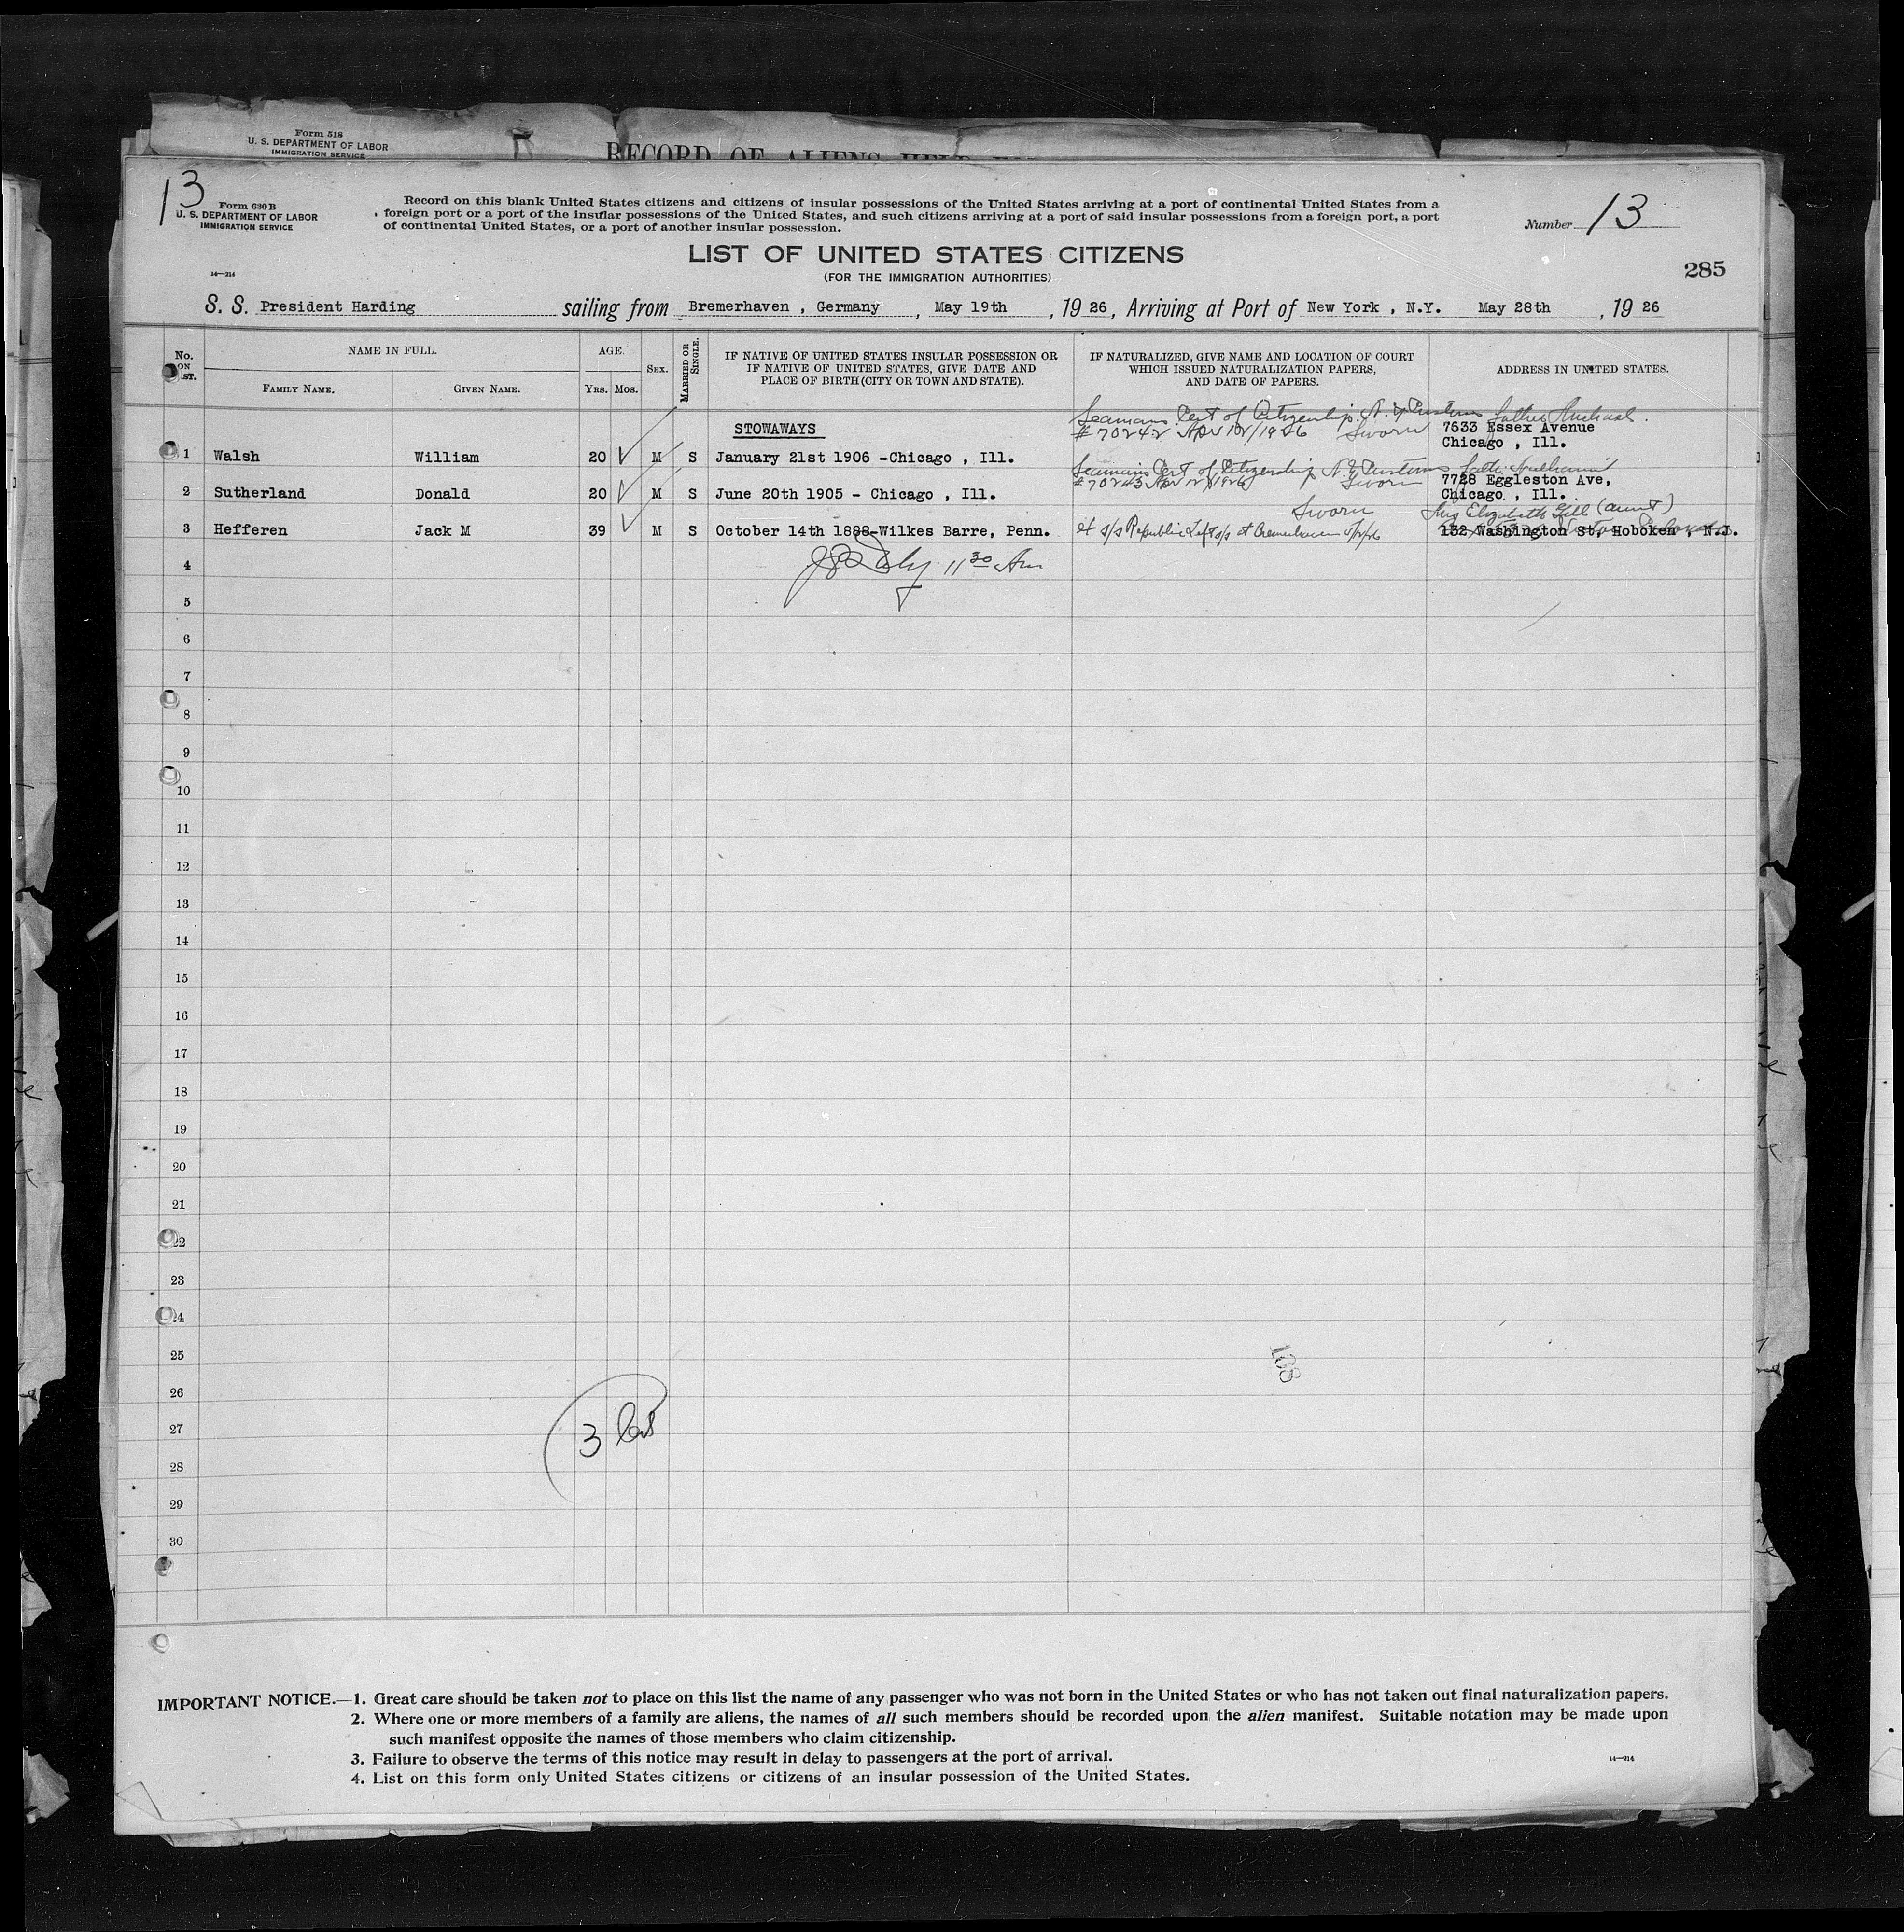 Form 518
U. S. DEPARTMENT OF LABOR
IMMIGRATION SERVICE
RECORD OF ALIENS HELD
13
Form 630 B
U. S. DEPARTMENT OF LABOR
IMMIGRATION SERVICE
Record on this blank United States citizens and citizens of insular possessions of the United States arriving at a port of continental United States from a
foreign port or a port of the insular possessions of the United States, and such citizens arriving at a port of said insular possessions from a foreign port, a port
of continental United States, or a port of another insular possession.
Number 13
LIST OF UNITED STATES CITIZENS
(FOR THE IMMIGRATION AUTHORITIES)
14—214
285
S. S. President Harding sailing from Bremerhaven , Germany , May 19th , 19 26 , Arriving at Port of New York , N.Y. May 28th , 19 26
No. ON LIST. NAME IN FULL. AGE. SEX. MARRIED OR SINGLE. IF NATIVE OF UNITED STATES INSULAR POSSESSION OR IF NATIVE OF UNITED STATES, GIVE DATE AND PLACE OF BIRTH (CITY OR TOWN AND STATE). IF NATURALIZED, GIVE NAME AND LOCATION OF COURT WHICH ISSUED NATURALIZATION PAPERS, AND DATE OF PAPERS. ADDRESS IN UNITED STATES.
FAMILY NAME. GIVEN NAME. YRS. MOS.
Seamans Cert of Citizenship N.Y Customs father Michael.
STOWAWAYS # 70242 Apr 12/1926 Sworn 7633 Essex Avenue
Chicago , Ill.
1 Walsh William 20 M S January 21st 1906 -Chicago , Ill.
Seamans Cert of Citizenship N.Y Customs
# 70243 Apr 12/1926 Sworn 7728 Eggleston Ave,
2 Sutherland Donald 20 M S June 20th 1905 - Chicago , Ill. Chicago , Ill.
Sworn Mrs Elizabeth Gill (aunt)
3 Hefferen Jack M 39 M S October 14th 1888-Wilkes Barre, Penn. s/s Republic Left s/s at Bremerhaven 132 Washington St, Hoboken , N.J.
4 11 30 Am
5
6
7
8
9
10
11
12
13
14
15
16
17
18
19
20
21
22
23
24
25
188
26
27
3
28
29
30
IMPORTANT NOTICE.—1. Great care should be taken not to place on this list the name of any passenger who was not born in the United States or who has not taken out final naturalization papers.
2. Where one or more members of a family are aliens, the names of all such members should be recorded upon the alien manifest. Suitable notation may be made upon
such manifest opposite the names of those members who claim citizenship.
3. Failure to observe the terms of this notice may result in delay to passengers at the port of arrival.
14—214
4. List on this form only United States citizens or citizens of an insular possession of the United States.